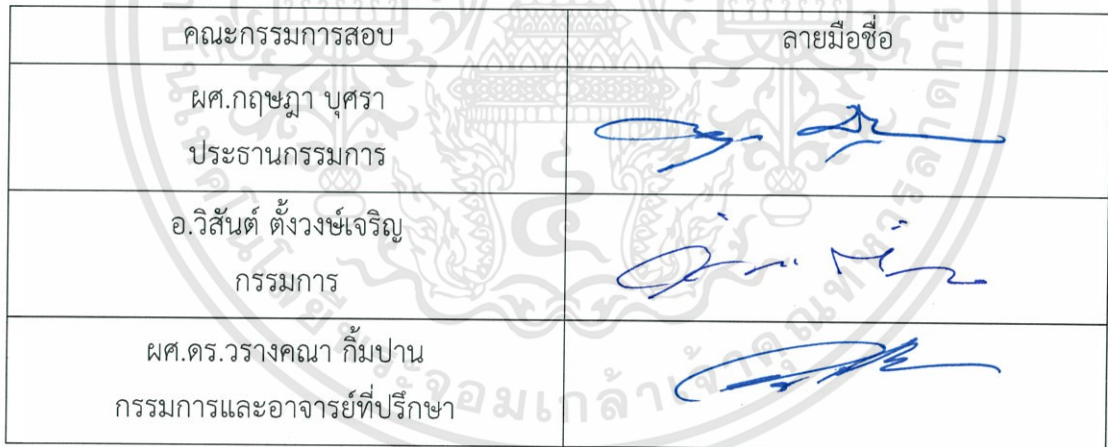 คณะกรรมการสอบ ลายมือชื่อ
ผศ.กฤษฎา บุศรา
ประธานกรรมการ
อ.วิสันต์ ตั้งวงษ์เจริญ
กรรมการ
ผศ.ดร.วรางคณา กิ้มปาน
กรรมการและอาจารย์ที่ปรึกษา